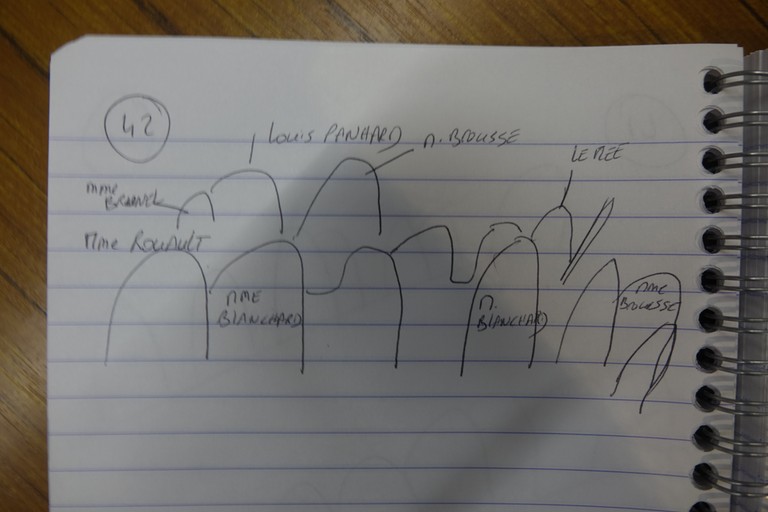 42
Louis PANHARD
M. BROUSSE
LE NEE
Mme
Mme ROUAULT
MME
BLANCHARD
M.
BLANCHARD
MME
BROUSSE